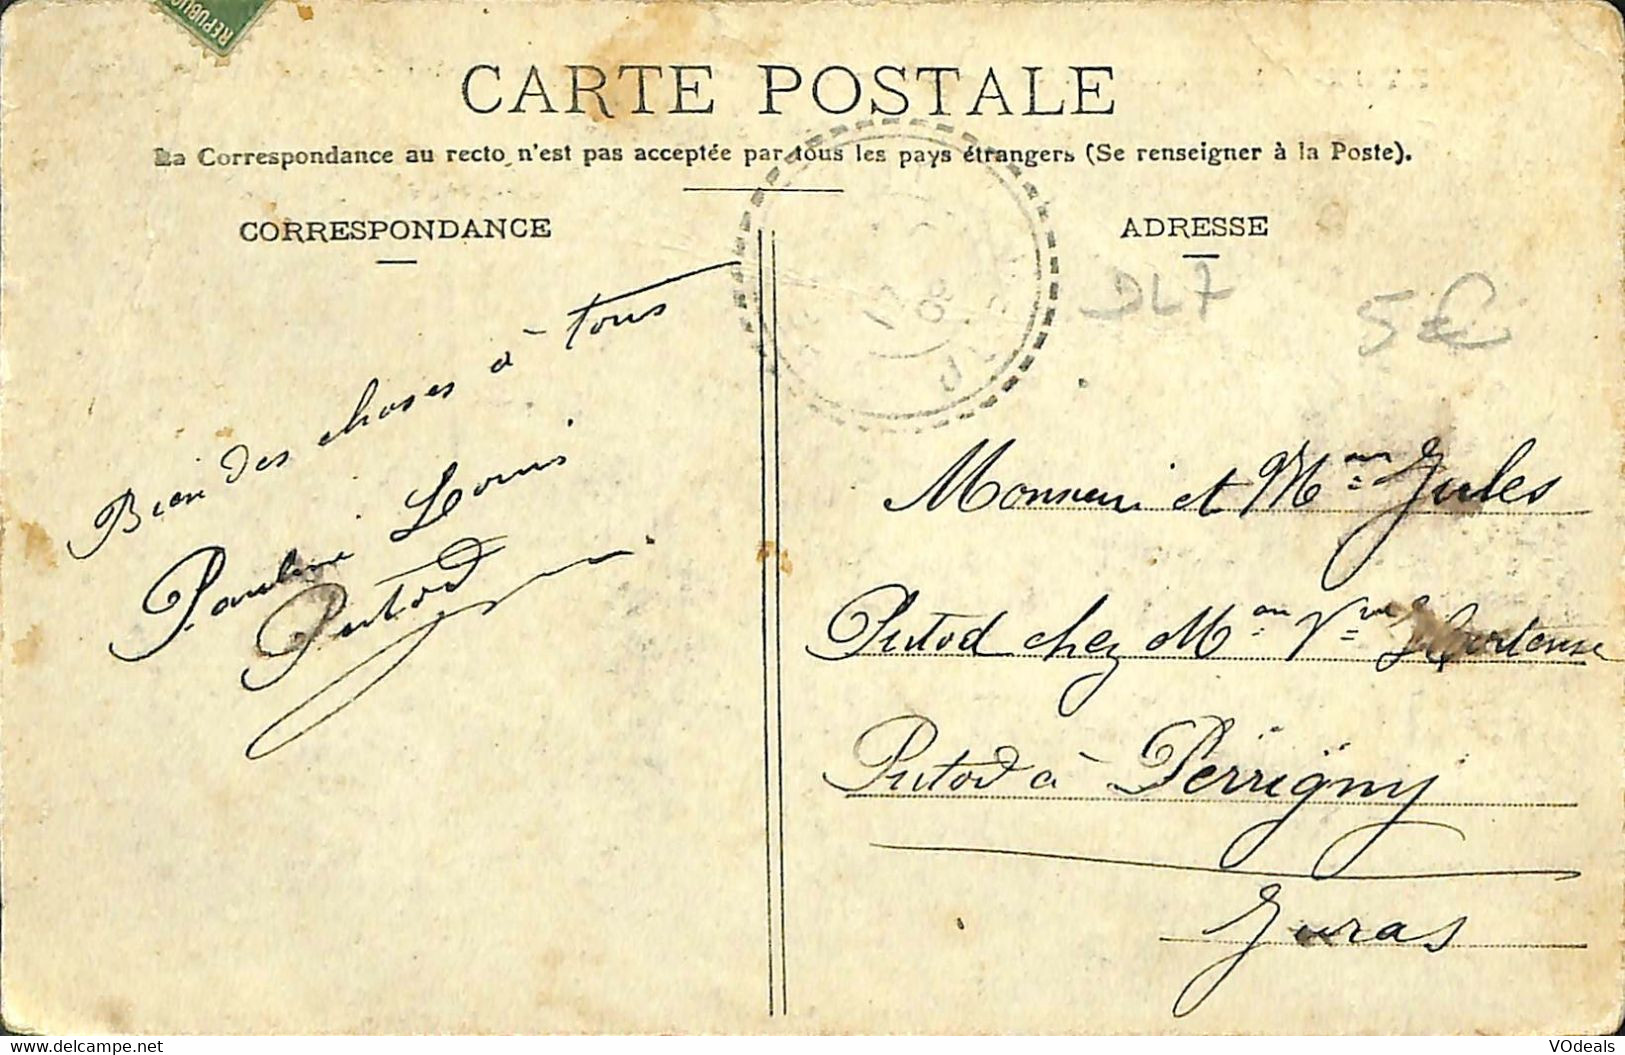 RÉPUBLIQ
CARTE POSTALE
La Correspondance au recto n'est pas acceptée par tous les pays étrangers (Se renseigner à la Poste).
CORRESPONDANCE
Bien des choses à tous
Pauline Louis
Putod
ADRESSE
DL7
5€
Monsieur et Mme Jules
Putod chez Mme Vve Hortense
Putod à Perrigny
Juras
VOdeals
https://www.delcampe.net